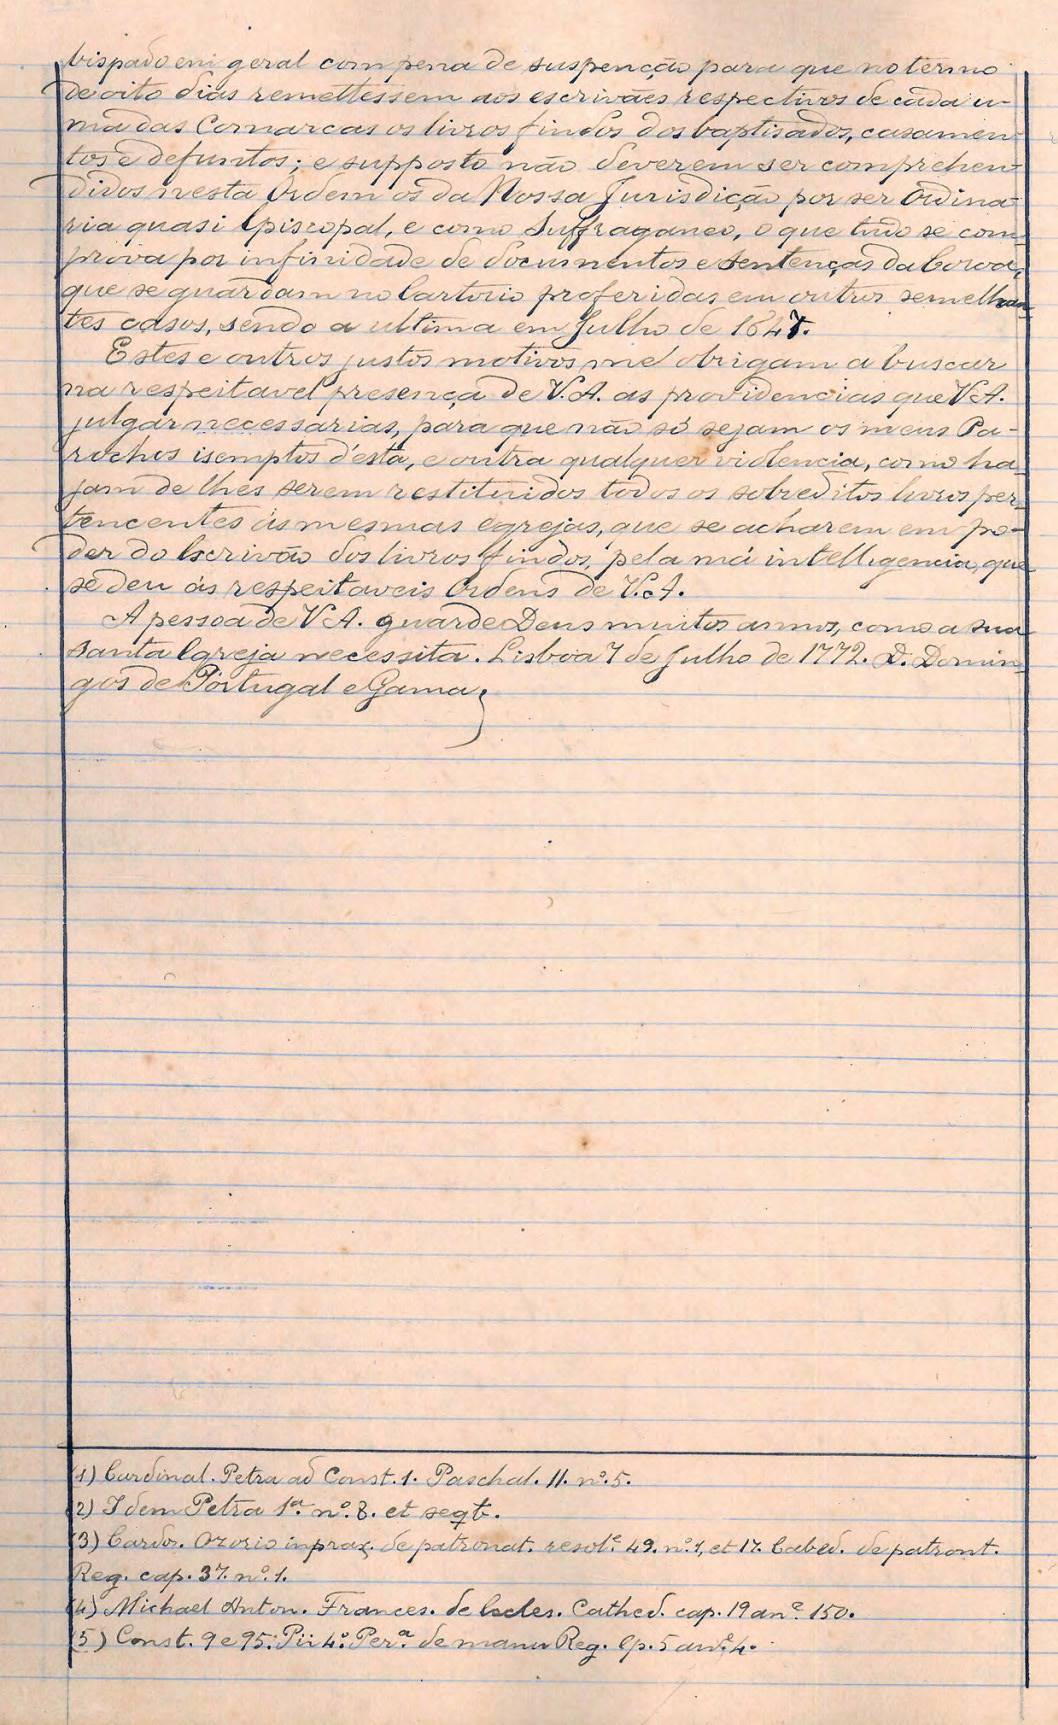 bispado em geral com pena de suspenção para que no termo
de oito dias remettessem aos escrivães respectivos de cada u-
ma das Comarcas os livros findos dos baptisados, casamen-
tos e defuntos; e supposto não deverem ser comprehen-
didos nesta Ordem os da Nossa Jurisdição por ser Ordina-
ria quasi Episcopal, e como Suffraganeo, o que tudo se com-
prova por infinidade de documentos e sentenças da Coroa,
que se guardam no Cartorio proferidas em outros semelhan-
tes casos, sendo a ultima em Julho de 1647.
Estes e outros justos motivos me obrigam a buscar
na respeitavel presença de V.A. as providencias que V.A.
julgar necessarias, para que não só sejam os meus Pa-
rochos isemptos d'esta, e outra qualquer violencia, como ha-
jam de lhes serem restituidos todos os sobreditos livros per-
tencentes ás mesmas egrejas, que se acharem em po-
der do Escrivão dos livros findos, pela má intelligencia, que
se deu ás respeitaveis Ordens de V.A.
A pessoa de V.A. guarde Deus muitos annos, como a sua
Santa Egreja necessita. Lisboa 7 de Julho de 1772. D. Domin-
gos de Portugal e Gama.
(1) Cardinal. Petra ad Const. 1. Paschal. II. nº. 5.
(2) Idem Petra 1ª. nº. 8. et seqt.
(3) Cardos. Ozorio in prax. de patronat. resol.e 49. nº. 1, et 17. Cabed. de patront.
Reg. cap. 37. nº. 1.
(4) Michael Anton. Frances. de Eccles. Cathed. cap. 19 a nº. 150.
(5) Const. 9 e 95. Pii 4º. Per.ª de manu Reg. Cp. 5 a nº. 4.